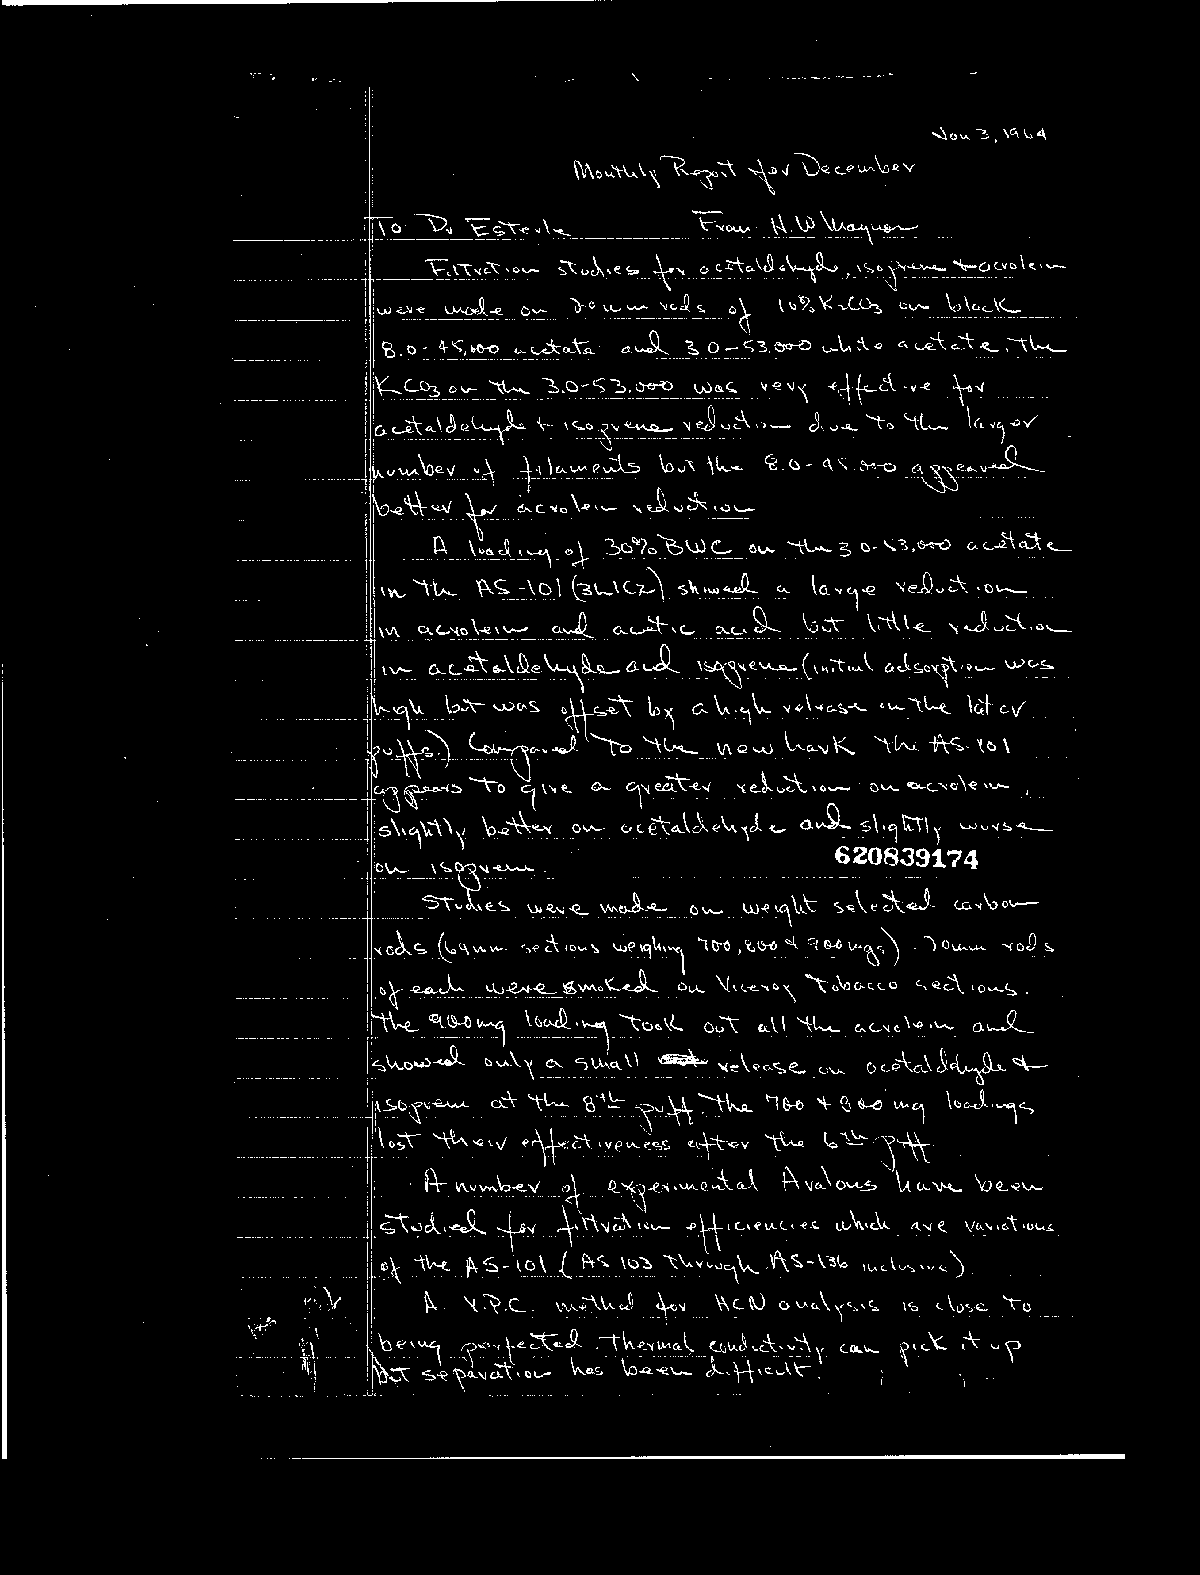 Jan 3, 1964
Monthly Report for December
To Dr Esterle From H.W Magner
Filtration studies for acetaldehyde, isoprene + acrolein
were made on 70mm rods of 10% K2CO3 on black
8.0-45,000 acetate and 3.0-53,000 white acetate. The
KCO3 on the 3.0-53,000 was very effective for
acetaldehyde + isoprene reduction due to the larger
number of filaments but the 8.0-45,000 appeared
better for acrolein reduction
A loading of 30% BWC on the 3.0-53,000 acetate
in the AS-101 showed a large reduction
in acrolein and acetic acid but little reduction
in acetaldehyde and isoprene (initial adsorption was
high but was offset by a high release in the later
puffs.) Compared to the new Lark the AS-101
appears to give a greater reduction on acrolein,
slightly better on acetaldehyde and slightly worse
on isoprene.
620839174
Studies were made on weight selected carbon
rods (69mm sections weighing 700, 800 + 900mgs). 70mm rods
of each were smoked on Viceroy Tobacco sections.
The 900mg loading took out all the acrolein and
showed only a small release on acetaldehyde +
isoprene at the 8th puff. The 700 + 800 mg loadings
lost their effectiveness after the 6th puff
A number of experimental Avalons have been
studied for filtration efficiencies which are variations
of the AS-101 (AS 103 through AS-136 inclusive)
A V.P.C. method for HCN analysis is close to
being perfected. Thermal conductivity can pick it up
but separation has been difficult.